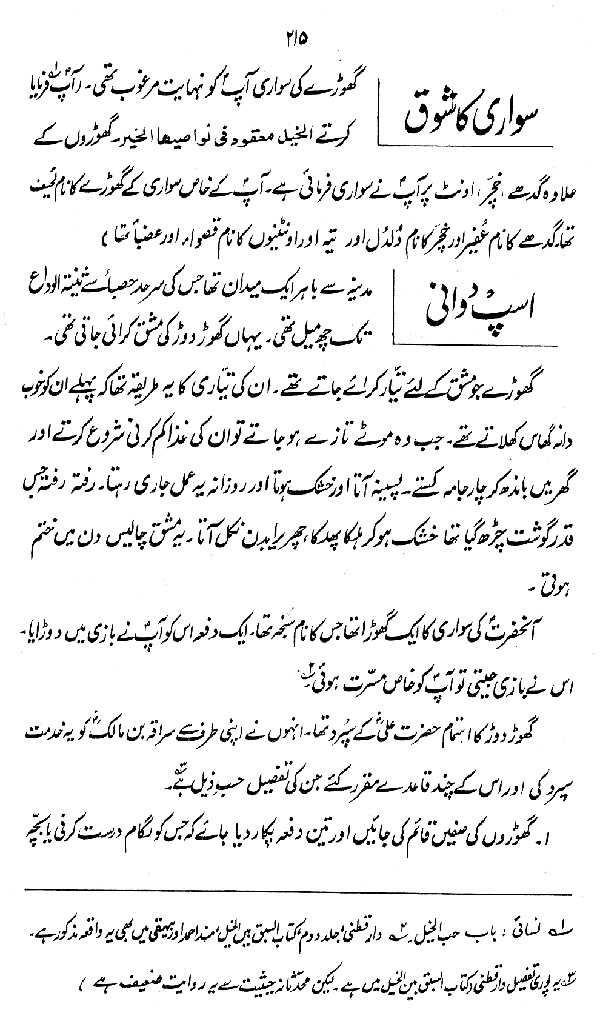 ۲۱۵
سواری کا شوق
گھوڑے کی سواری آپؐ کو نہایت مرغوب تھی۔ (آپؐ فرمایا
کرتے الخیل معقود فی نواصیھا الخیر۔ گھوڑوں کے
علاوہ گدھے، خچر، اونٹ پر آپؐ نے سواری فرمائی ہے۔ آپؐ کے خاص سواری کے گھوڑے کا نام لحیف
تھا، گدھے کا نام عُفیر اور خچر کا نام دُلدُل اور تیہ اور اونٹنیوں کا نام قصواء اور عضبأ تھا)
اسپ دوانی
مدینہ سے باہر ایک میدان تھا جس کی سرحد حصبأ سے ثنیۃ الوداع
تک چھ میل تھی۔ یہاں گھوڑ دوڑ کی مشق کرائی جاتی تھی۔
گھوڑے جو مشق کے لئے تیار کرائے جاتے تھے۔ ان کی تیاری کا یہ طریقہ تھا کہ پہلے ان کو خوب
دانہ گھاس کھلاتے تھے۔ جب وہ موٹے تازے ہو جاتے تو ان کی غذا کم کرنی شروع کرتے اور
گھر میں باندھ کر چار جامہ کستے۔ پسینہ آتا اور خشک ہوتا اور روزانہ یہ عمل جاری رہتا۔ رفتہ رفتہ جس
قدر گوشت چڑھ گیا تھا خشک ہو کر ہلکا پھلکا، چھریرا بدن نکل آتا۔ یہ مشق چالیس دن میں ختم
ہوتی۔
آنحضرتؐ کی سواری کا ایک گھوڑا تھا جس کا نام سُنجہ تھا۔ ایک دفعہ اس کو آپؐ نے بازی میں دوڑایا۔
اس نے بازی جیتی تو آپؐ کو خاص مسرت ہوئی۲؎۔
گھوڑ دوڑ کا اہتمام حضرت علیؓ کے سپرد تھا۔ انہوں نے اپنی طرف سے سراقہ بن مالکؓ کو یہ خدمت
سپرد کی اور اس کے چند قاعدے مقرر کئے جن کی تفصیل حسبِ ذیل ہے۳؎۔
۱۔ گھوڑوں کی صفیں قائم کی جائیں اور تین دفعہ پکار دیا جائے کہ جس کو لگام درست کرنی یا بچّہ
۱؎ نسائی: باب حب الخیل۔ ۲؎ دارقطنی، جلد دوم، کتاب السبق بین الخیل، مسند احمد اور بیہقی میں بھی یہ واقعہ مذکور ہے۔
۳؎ یہ پوری تفصیل دارقطنی (کتاب السبق بین الخیل میں ہے۔ لیکن محدثانہ حیثیت سے یہ روایت ضعیف ہے)